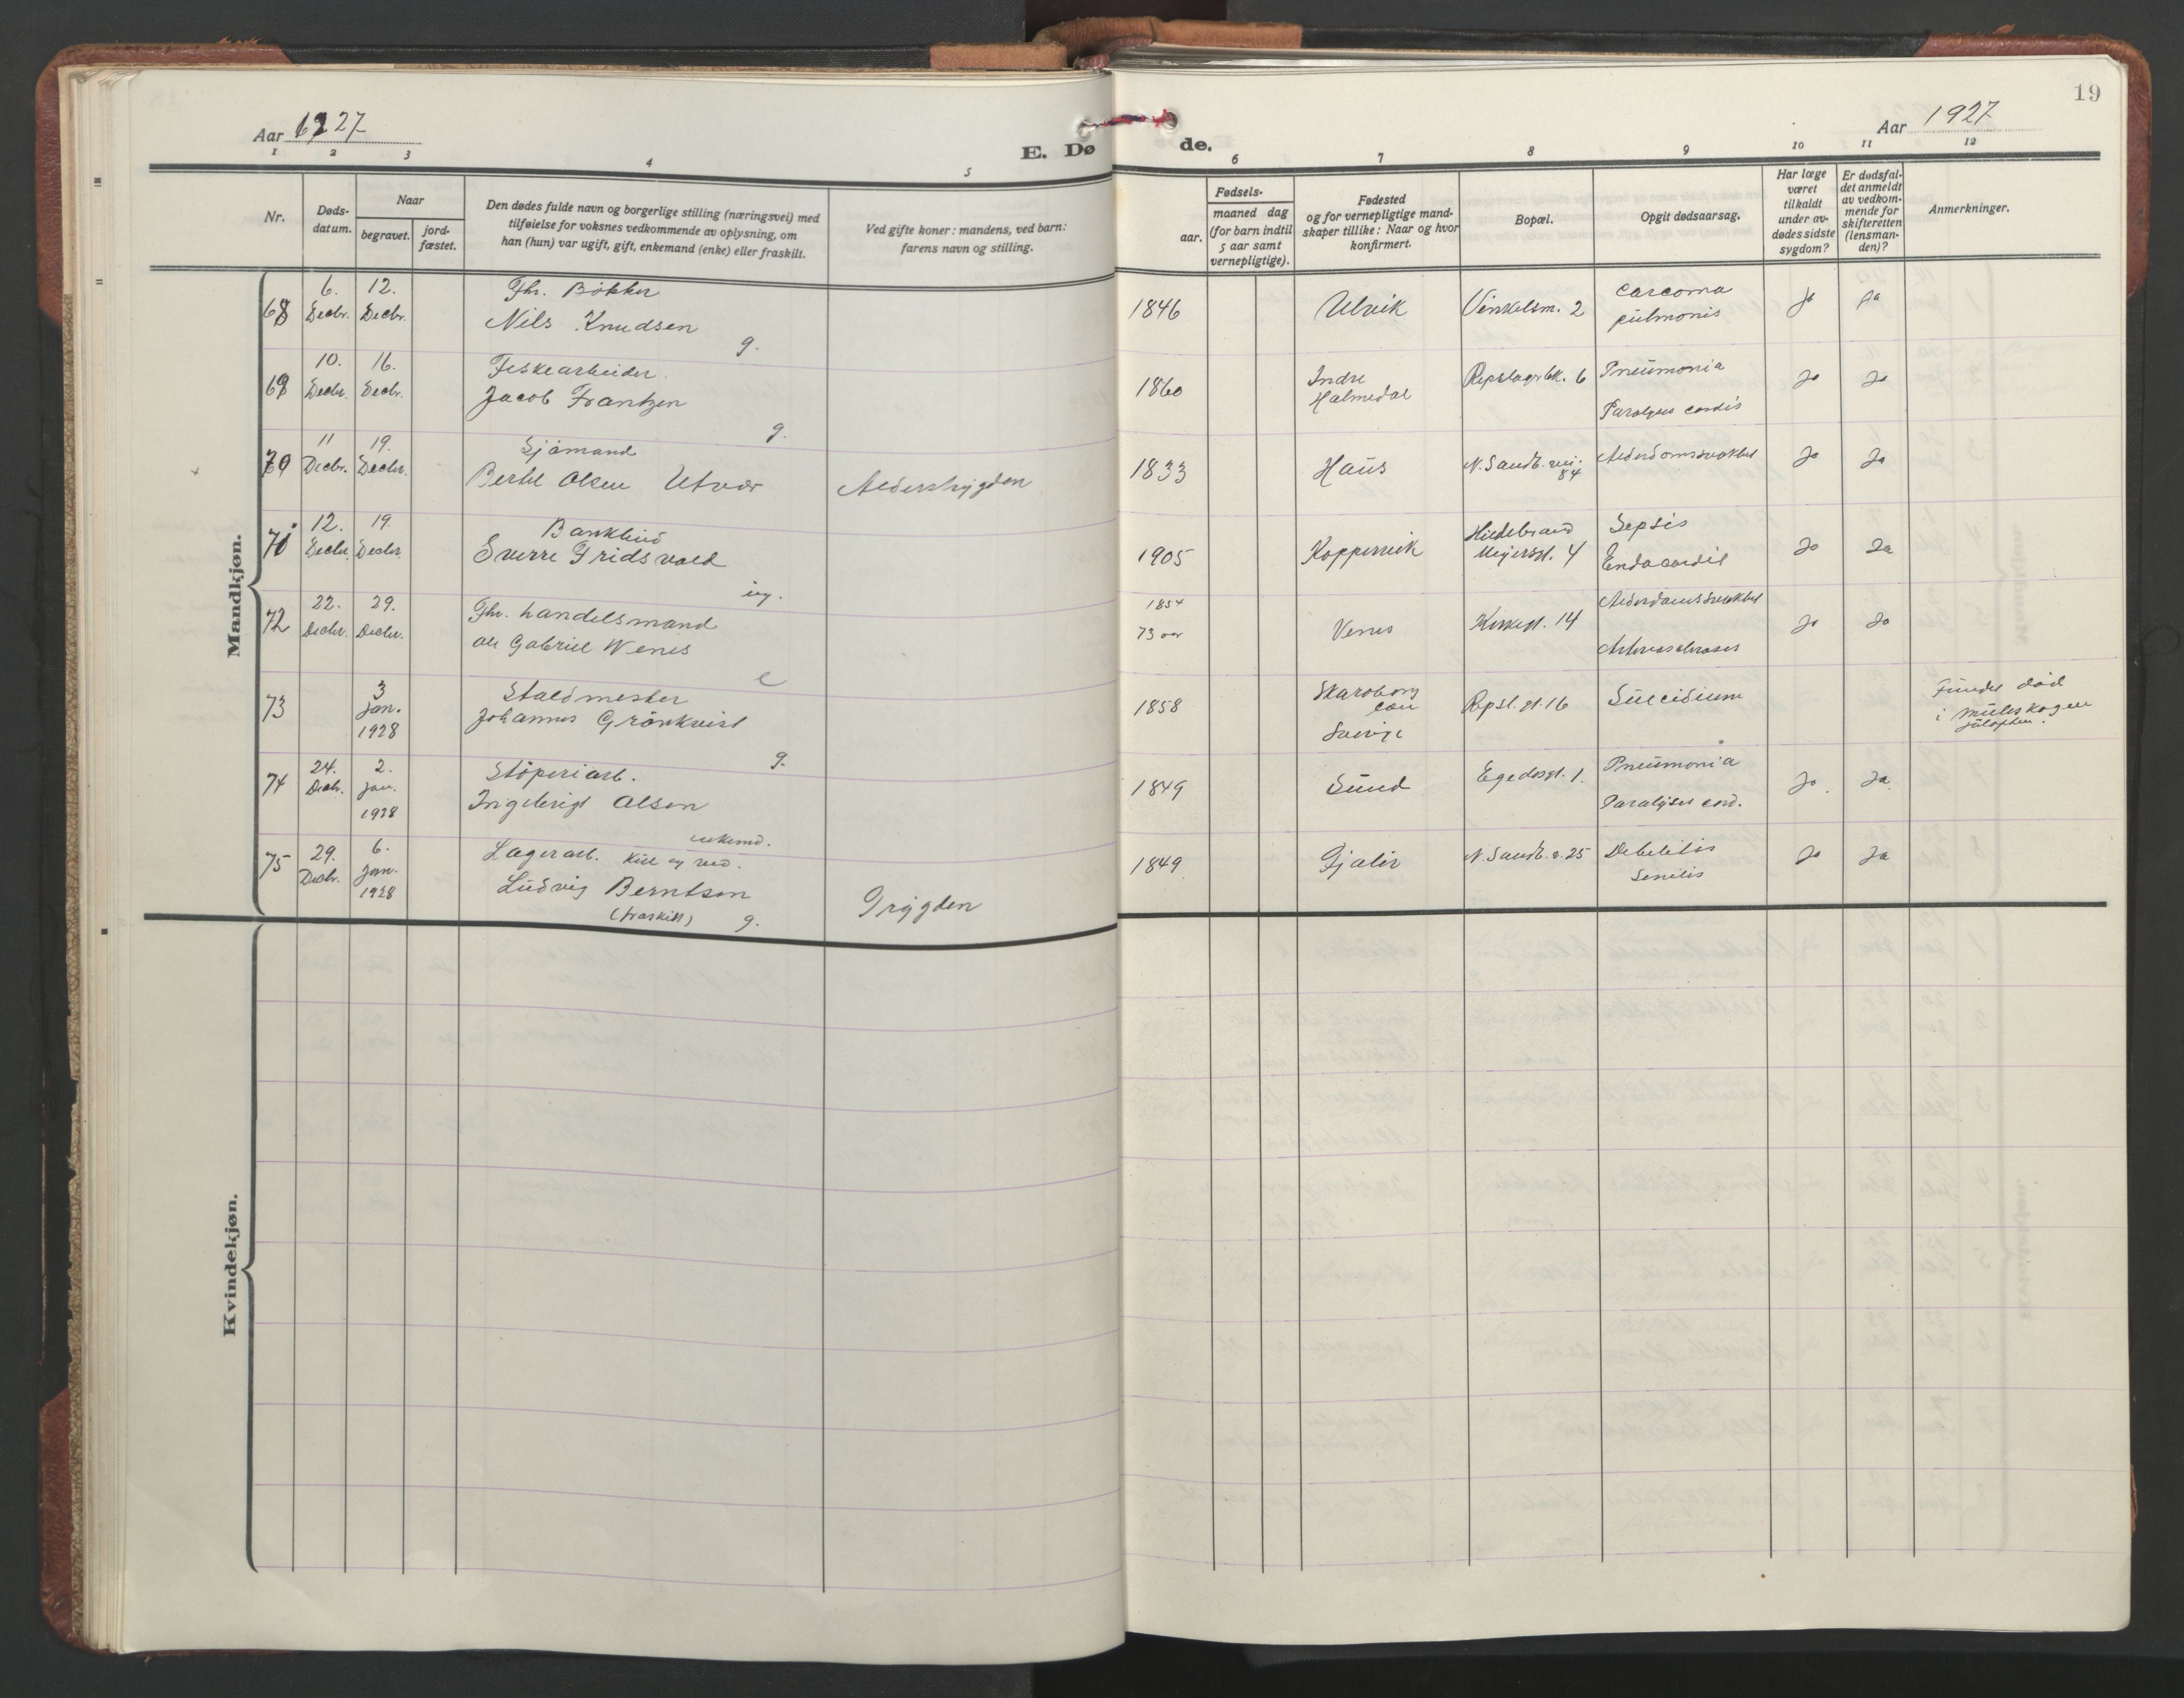 19
Aar 1927
E. Dø
de.
Aar 1927
1 2 3 4 5 6 7 8 9 10 11 12
Nr.
Døds-
datum.
Naar
begravet.
jord-
fæstet.
Den dødes fulde navn og borgerlige stilling (næringsvei) med
tilføielse for voksnes vedkommende av oplysning, om
han (hun) var ugift, gift, enkemand (enke) eller fraskilt.
Ved gifte koner: mandens, ved barn:
farens navn og stilling.
Fødsels-
aar.
maaned dag
(for barn indtil
5 aar samt
vernepligtige).
Fødested
og for vernepligtige mand-
skaper tillike: Naar og hvor
konfirmert.
Bopæl.
Opgit dødsaarsag.
Har læge
været
tilkaldt
under av-
dødes sidste
sygdom?
Er dødsfal-
det anmeldt
av vedkom-
mende for
skifteretten
(lensman-
den)?
Anmerkninger.
Mandkjøn.
68
6. Decbr.
12. Decbr.
Fhr. Bøkker
Nils Knudsen
g.
1846
Ulvik
Vinkelsm. 2
Carcoma
pulmonis
Ja
Ja
69
10. Decbr.
16. Decbr.
Feskearbeider
Jacob Frantzen
g.
1860
Indre
Holmedal
Repslagerbk. 6
Pneumonia
Paralyses cordis
Ja
Ja
70
11 Decbr.
19. Decbr.
Sjömand
Bertel Olsen Utvær
Alderstrygden
1833
Haus
N. Sandb. vei.
84
Alderdomssvakhet
Ja
Ja
71
12. Decbr.
19. Decbr.
Bankbud
Sverre Fridsvold
ug.
1905
Koppervik
Hildebrand
Meyersgt. 4
Sepsis
Endocardit
Ja
Ja
72
22. Decbr.
29. Decbr.
Fhr. handelsmand
Ole Gabriel Wenes
e
1854
73 aar
Venes
Kirkegt. 14
Alderdomssvakhet
Arteriosclerosis
Ja
Ja
73
3 Jan. 1928
Staldmester
Johannes Grönkvist
g.
1858
Skaraborg
län
Sverige
Repsl. gt. 16
Suicidium
Fundet död
i Muleskogen
74
24. Decbr.
2. Jan. 1928
Stöperiarb.
Ingebrigt Olsen
enkemd.
1849
Sund
Egedesgt. 1.
Pneumonia
Paralyses cord.
Ja
Ja
75
29. Decbr.
6. Jan. 1928
Lagerarb. Kul og ved.
Ludvig Berntsen
(fraskilt) g.
Trygden
1849
Gjalir
N. Sandb. v. 25
Debilitis
Senilis
Ja
Ja
Kvindekjøn.